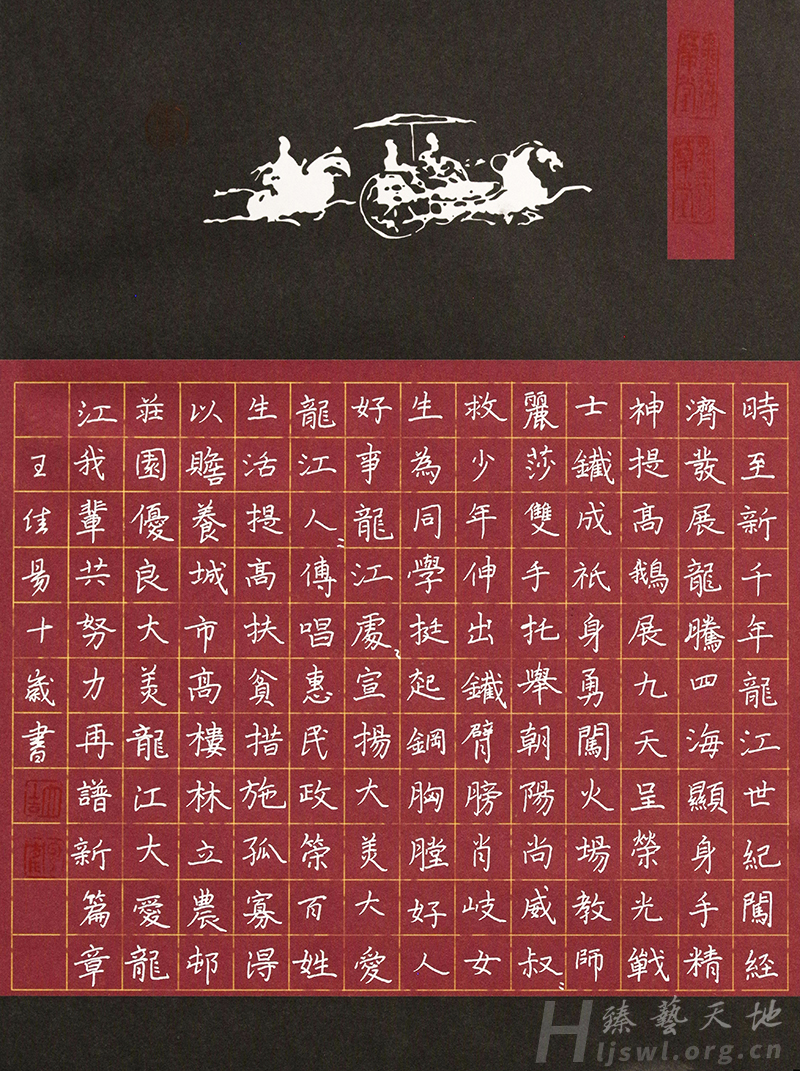 時至新千年龍江世紀闖經
濟發展龍騰四海顯身手精
神提高鵝展九天呈榮光戰
士鐵成祇身勇闖火場教師
麗莎雙手托舉朝陽尚威叔〻
救少年伸出鐵臂膀肖岐女
生為同學挺起鋼胸膛好人
好事龍江處〻宣揚大美大愛
龍江人〻傳唱惠民政策百姓
生活提高扶貧措施孤寡得
以贍養城市高樓林立農邨
莊園優良大美龍江大愛龍
江我輩共努力再譜新篇章
王佳昜十歲書
臻藝天地
Hljswl.org.cn